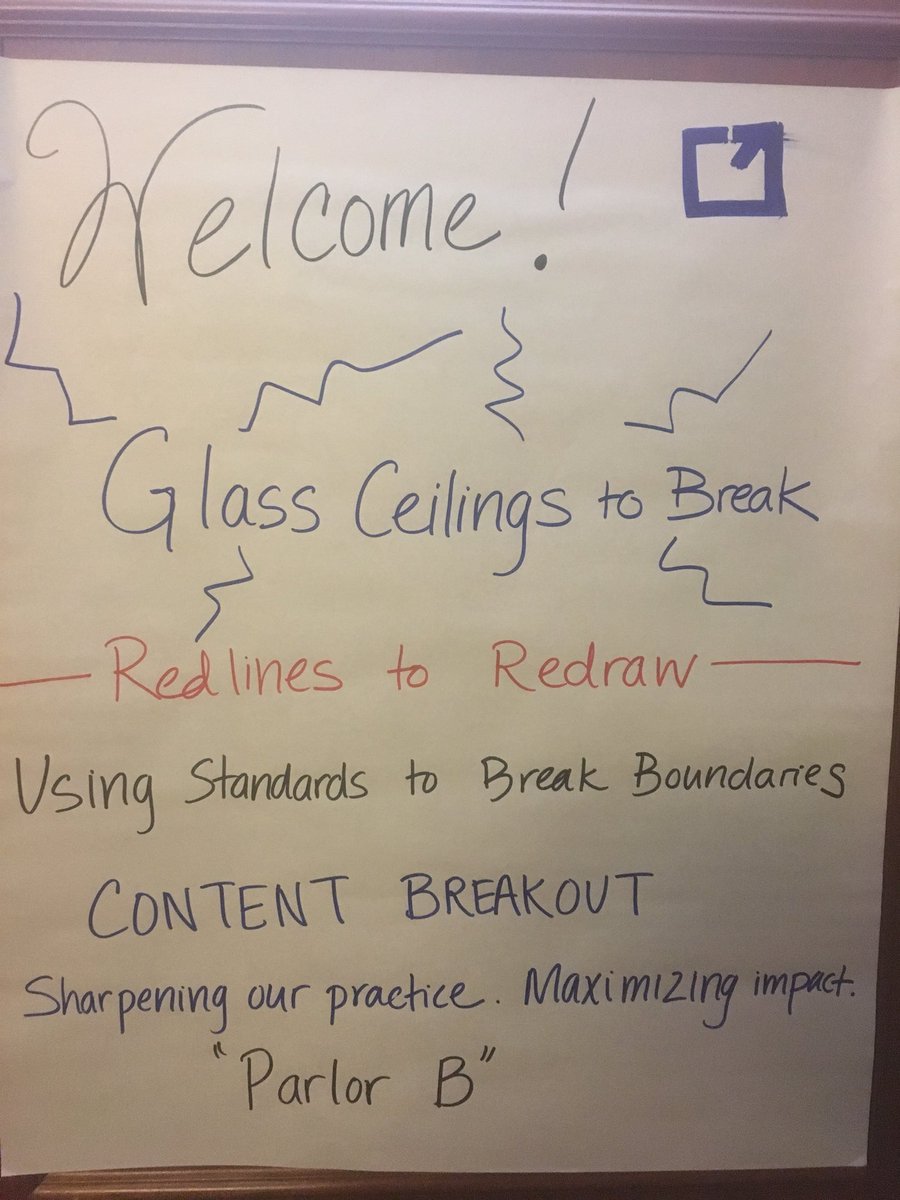 Welcome!
Glass Ceilings to Break
Redlines to Redraw
Using Standards to Break Boundaries
CONTENT BREAKOUT
Sharpening our practice. Maximizing impact.
"Parlor B"